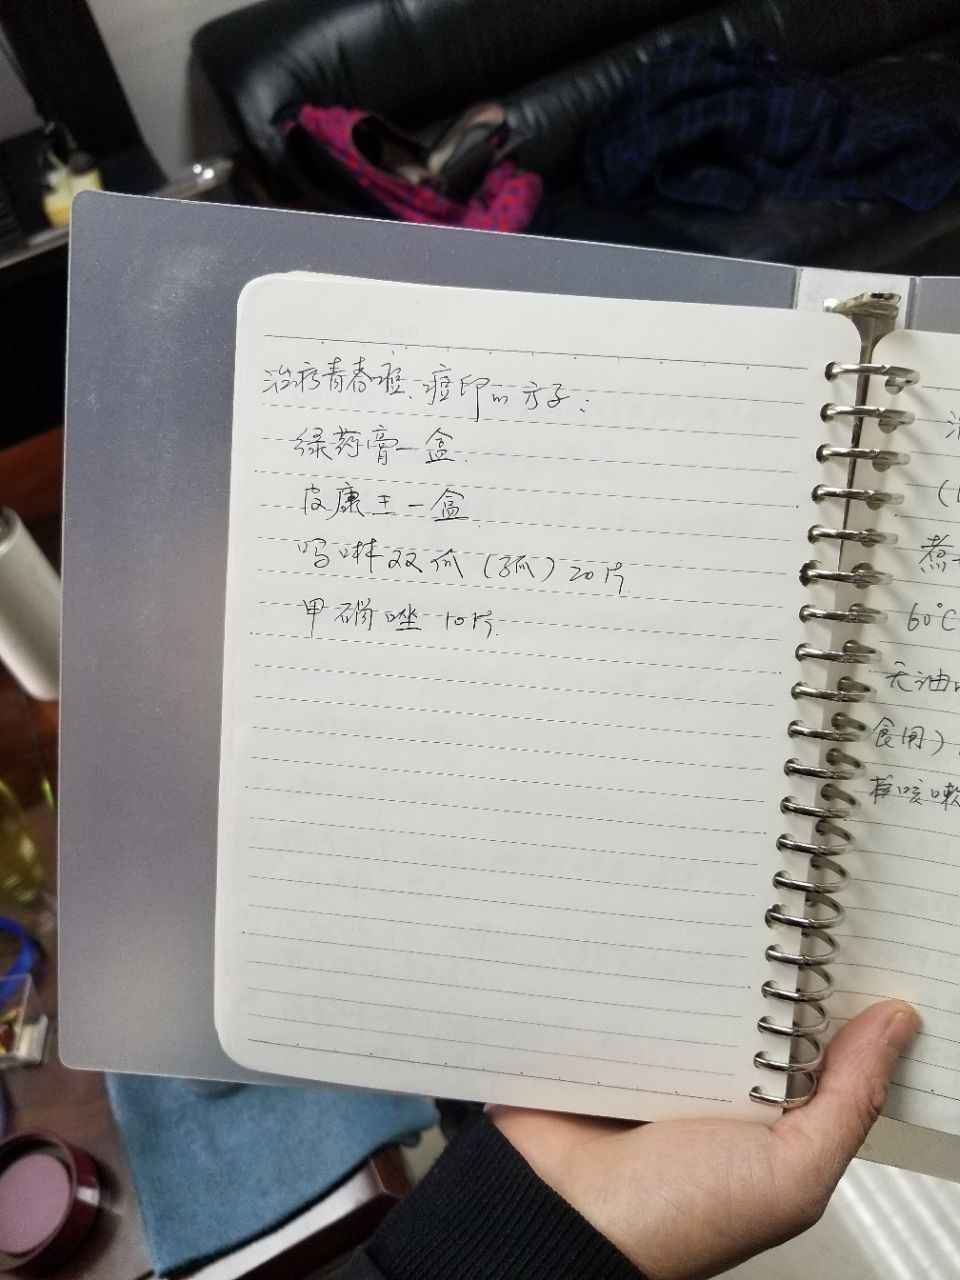 治疗青春痘、痘印的方子:
绿药膏一盒.
皮康王一盒
吗啉双瓜(孤)20片
甲硝唑10片.
(1
煮
60℃
无油
食用)
咳嗽